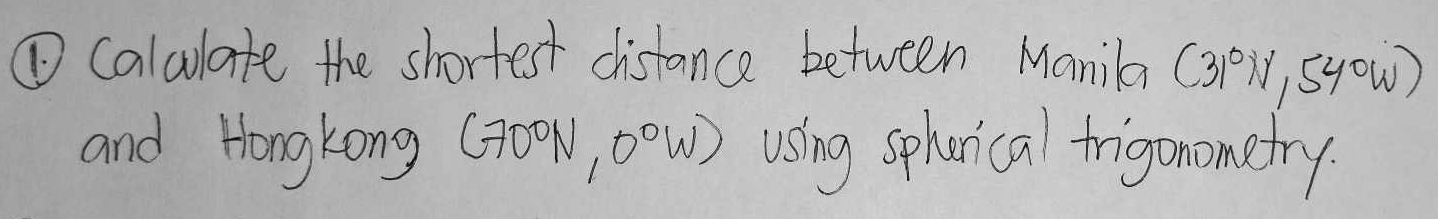 ① Calculate the shortest distance between Manila (31°N, 54°W)
and Hongkong (70°N, 0°W) using spherical trigonometry.